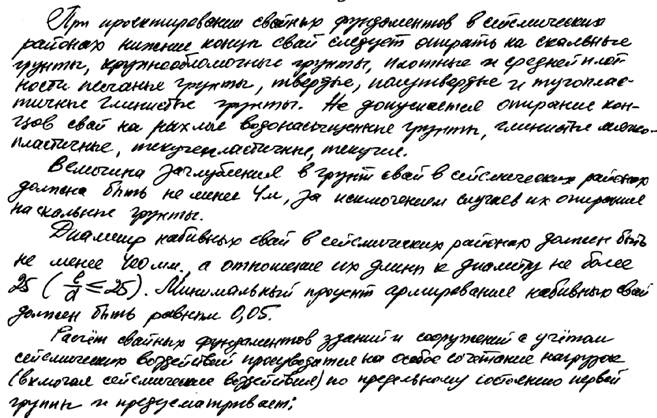 При проектировании свайных фундаментов в сейсмических
районах нижние концы свай следует опирать на скальные
грунты, крупнообломочные грунты, плотные и средней плот-
ности песчаные грунты, твердые, полутвердые и тугоплас-
тичные глинистые грунты. Не допускается опирание кон-
цов свай на рыхлые водонасыщенные грунты, глинистые мягко-
пластичные, текучепластичные, текучие.
Величина заглубления в грунт свай в сейсмических районах
должна быть не менее 4м, за исключением случаев их опирания
на скальные грунты.
Диаметр набивных свай в сейсмических районах должен быть
не менее 400 мм, а отношение их длины к диаметру не более
25 (l/d ≤ 25). Минимальный процент армирования набивных свай
должен быть равным 0,05.
Расчёт свайных фундаментов зданий и сооружений с учётом
сейсмических воздействий производится на особое сочетание нагрузок
(включая сейсмические воздействия) по предельному состоянию первой
группы и предусматривает: